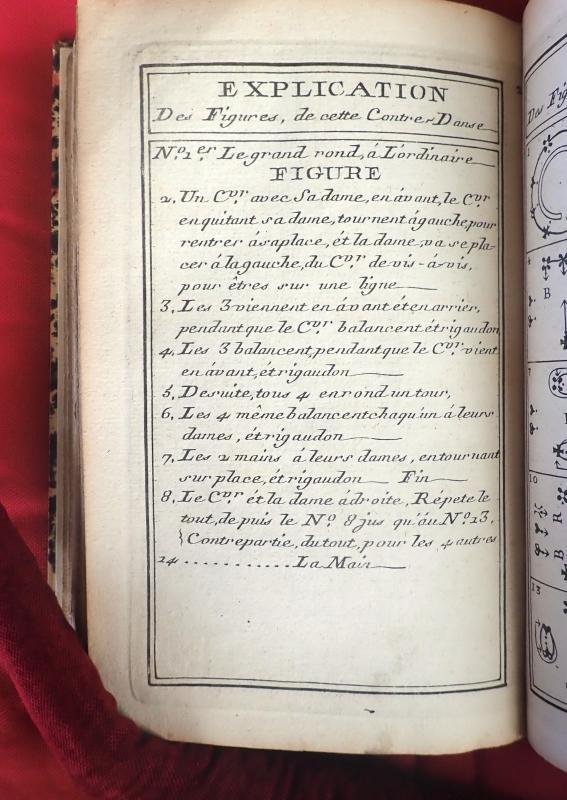 EXPLICATION
Des Figures, de cette Contre-Danse
N.º 1.er Le grand rond, á L'ordinaire
FIGURE
2. Un C.vr avec Sa dame, en ávant, le C.vr
en quitant sa dame, tournent ágauche, pour
rentrer ásaplace, ét la dame va se pla-
cer álagauche, du C.vr de vis-á-vis,
pour êtres sur une ligne
3. Les 3 viennent en ávant ét en arrier,
pendant que le C.vr balancent ét rigaudon
4. Les 3 balancent, pendant que le C.vr vient
en ávant, ét rigaudon
5. De suite, tous 4 en rond un tour,
6. Les 4 même balancent chaqu'un á leurs
dames, ét rigaudon
7. Les 2 mains á leurs dames, en tournant
sur place, ét rigaudon Fin
8. Le C.vr ét la dame ádroite, Répete le
tout, de puis le N.º 8 jus qu'áu N.º 13,
Contrepartie, du tout, pour les 4 autres
14 ........... La Main
Des Fig
1
4
B
7
10
R
B
R
13